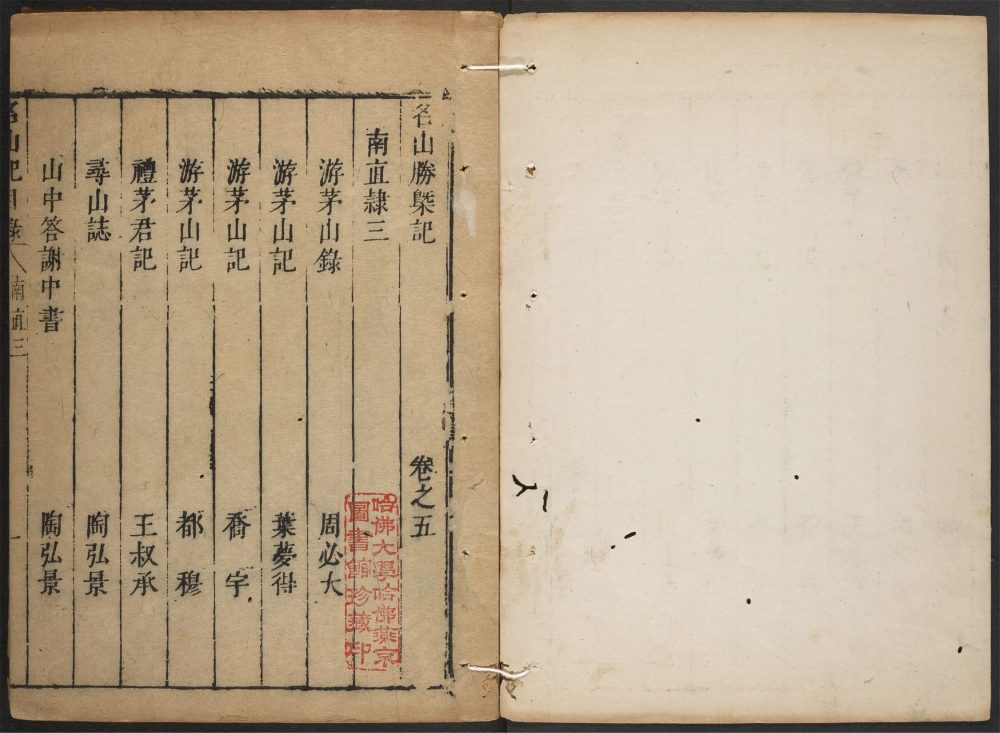 名山勝槩記 卷之五
南直隷三
游茅山錄 周必大
游茅山記 葉夢得
游茅山記 喬宇
游茅山記 都穆
禮茅君記 王叔承
尋山誌 陶弘景
山中答謝中書 陶弘景
名山記目錄 南直三 一
哈佛大學哈佛燕京
圖書館珍藏印